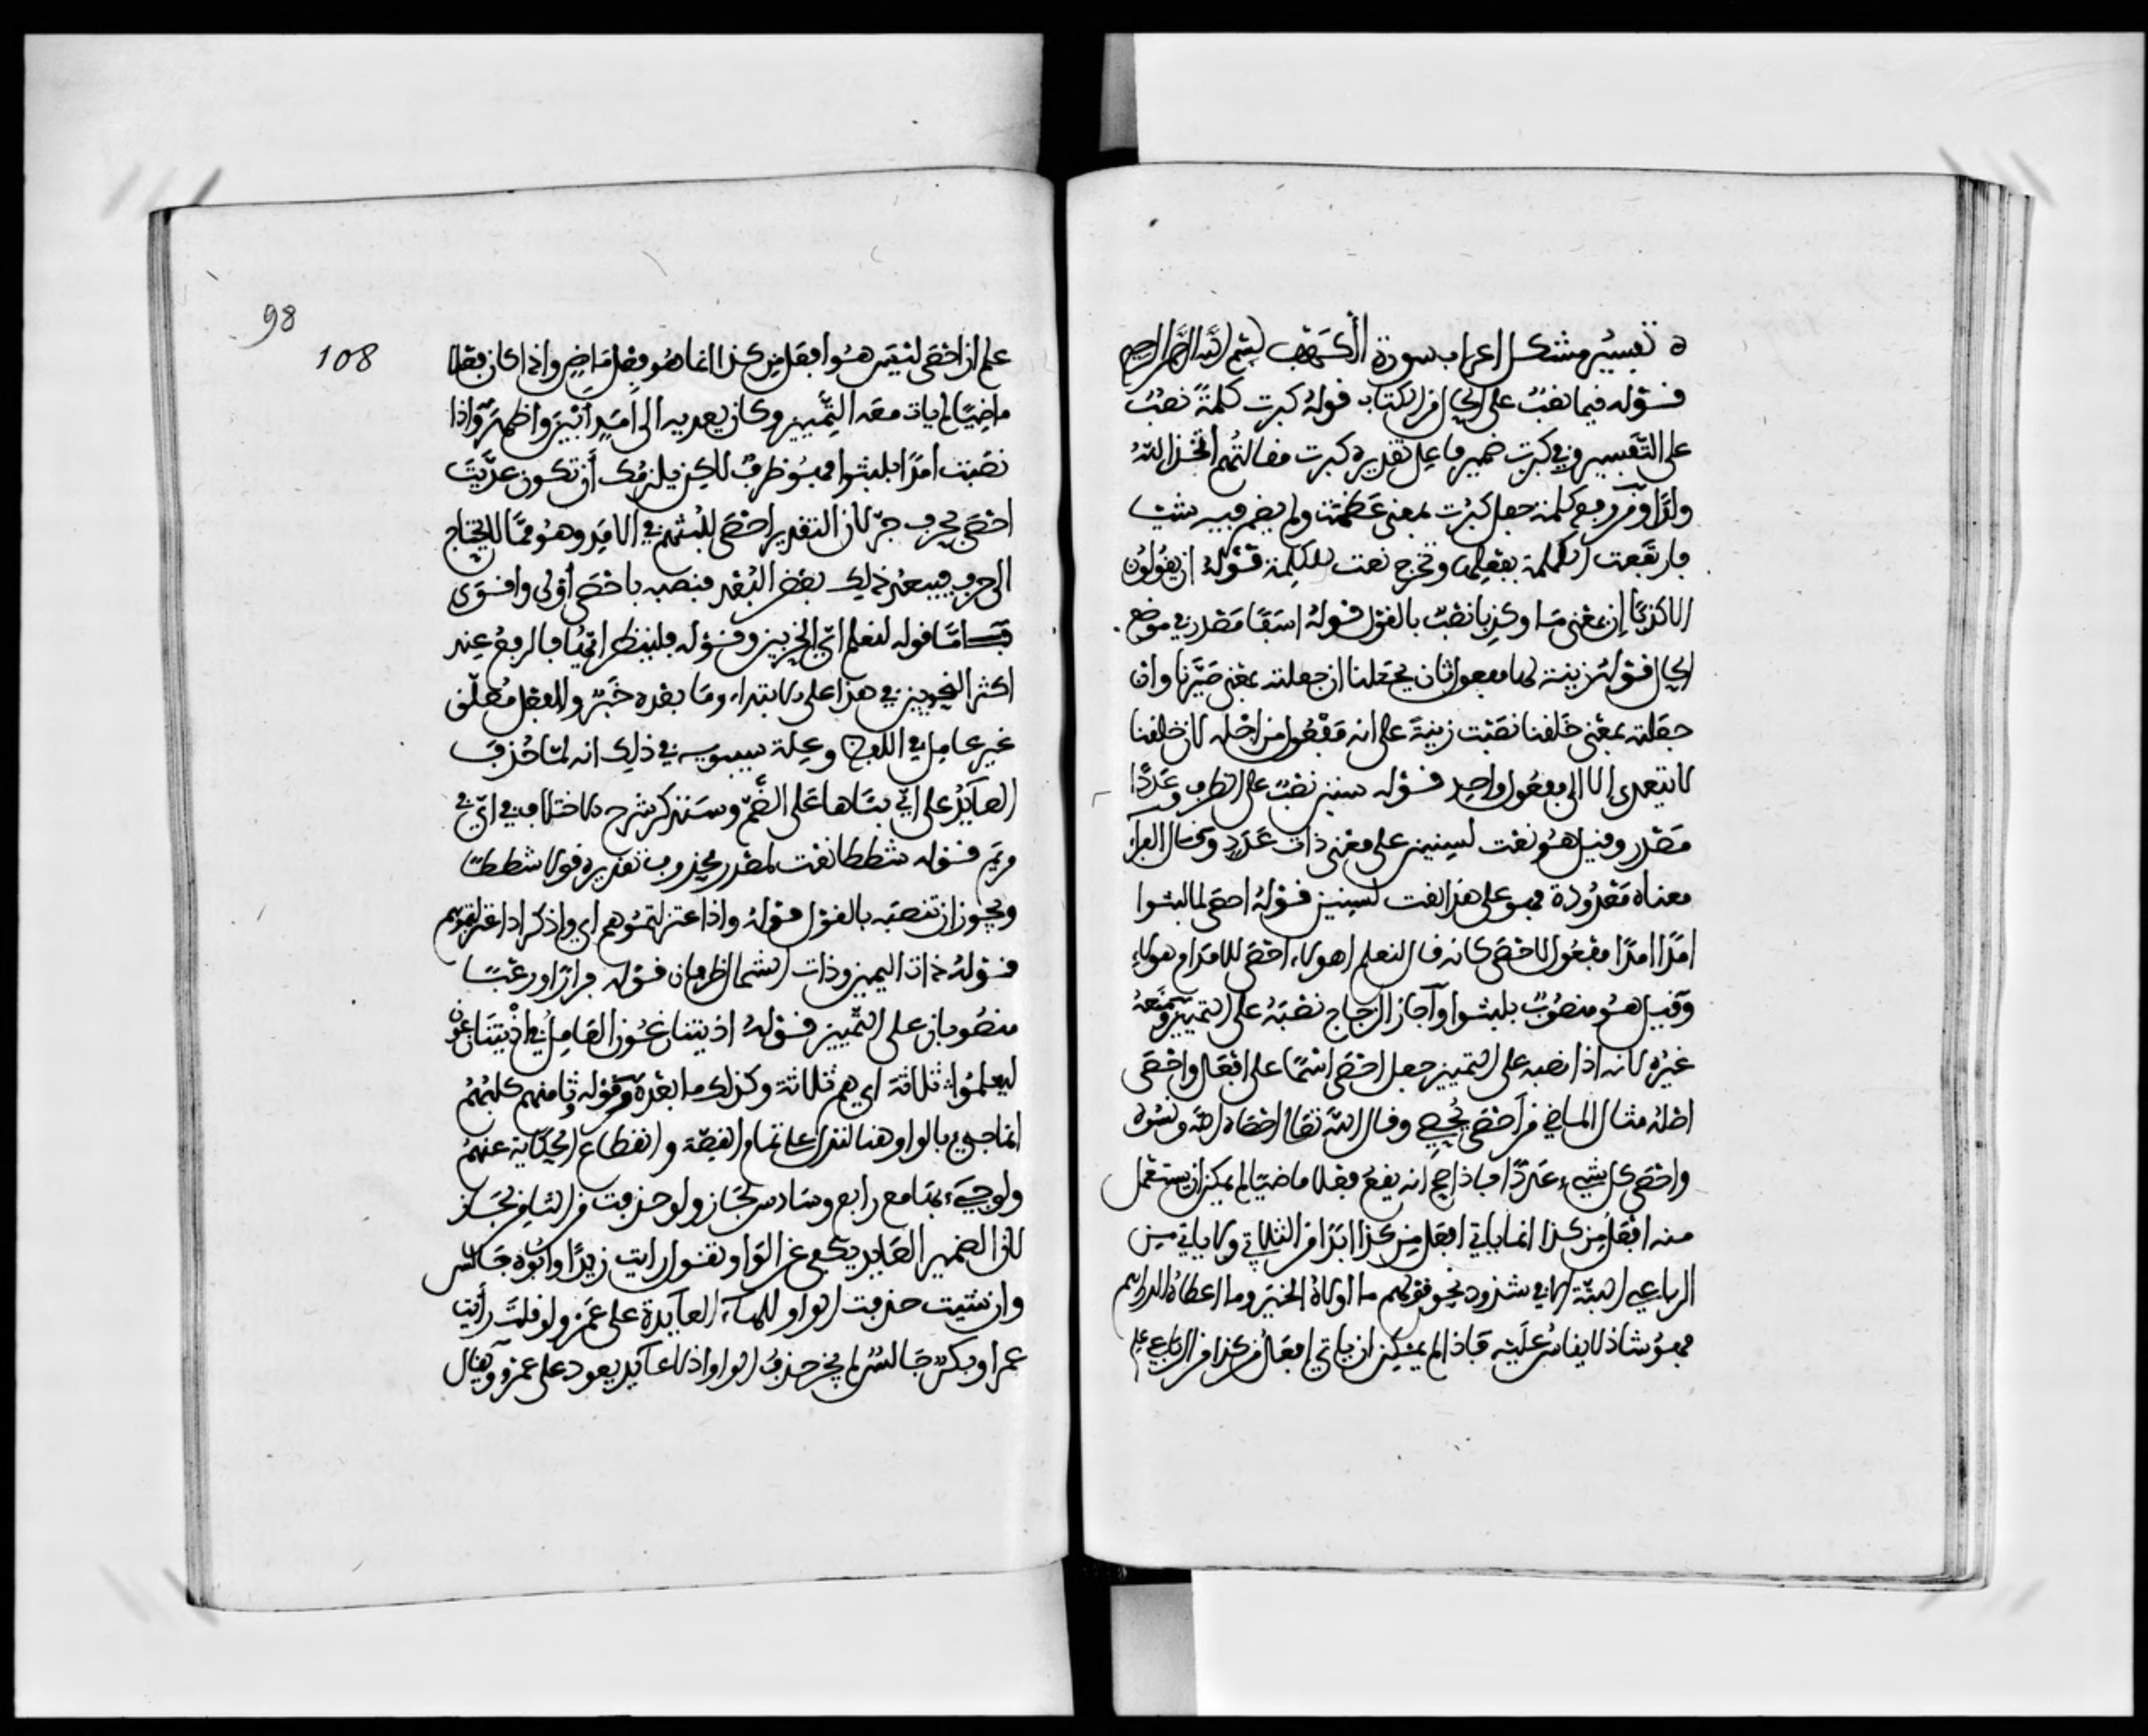 تفسير مشكل اعراب سورة الكهف بسم الله الرحمن الرحيم
قوله قيما نصب على الحال من الكتاب قوله كبرت كلمة نصب
على التفسير وفي كبرت ضمير فاعل تقديره كبرت مقالتهم اتخذ الله
ولدا ومن رفع كلمة جعل كبرت بمعنى عظمت ولم يضمر فيه شيئا
فارتفعت الكلمة بفعلها وتخرج نعت للكلمة قوله ان يقولون
الا كذبا ان بمعنى ما وكذبا نصب بالقول قوله اسفا مصدر في موضع
الحال قوله زينة لها مفعول ثان لجعلنا ان جعلته بمعنى صيرنا وان
جعلته بمعنى خلقنا نصبت زينة على انه مفعول من اجله لان خلقنا
لا يتعدى الا الى مفعول واحد قوله سنين نصب على الظرف وعددا
مصدر وقيل هو نعت لسنين على معنى ذات عدد وقال الفراء
معناه معدودة فهو على هذا نعت لسنين قوله احصى لما لبثوا
امدا امدا مفعول لاحصى كانه قال لنعلم اهولاء احصى للامد ام هولاء
وقيل هو منصوب بلبثوا واجاز الزجاج نصبه على التمييز ومنعه
غيره لانه اذا نصبه على التمييز جعل احصى اسما على افعل واحصى
اصله مثال الماضي من احصى يحصي وقال الله تعالى احصاه الله ونسوه
واحصى كل شيء عددا فاذا صح انه يقع فعلا ماضيا لم يمكن ان يستعمل
منه افعل من كذا انما ياتي افعل من كذا ابدا من الثلاثي ولا ياتي من
الرباعي البتة الا في شذوذ نحو قولهم ما اولاه للخير وما اعطاه للدراهم
فهو شاذ لا يقاس عليه فاذا لم يمكن ان ياتي افعل من كذا من الرباعي علم
98
108
علم ان احصى ليس هو افعل من كذا انما هو فعل ماض واذا كان فعلا
ماضيا لم يات معه التمييز وكان تعديه الى امد ابين واظهر واذا
نصبت امدا بلبثوا فهو ظرف لكن يلزمك ان تكون عديت
احصى بحرف جر لان التقدير احصى للبثهم في الامد وهو مما لا يحتاج
الى حرف فيبعد ذلك بعض البعد فنصبه باحصى اولى واقوى
فاما قوله لنعلم اي الحزبين وقوله فلينظر ايها فالرفع عند
اكثر النحويين في هذا على الابتداء وما بعده خبر والفعل معلق
غير عامل في اللفظ وعلة سيبويه في ذلك انه لما حذف
العائد على اي بناها على الضم وسنذكر شرح الاختلاف في اي في
مريم قوله شططا نعت لمصدر محذوف تقديره قولا شططا
ويجوز ان تنصبه بالقول قوله واذ اعتزلتموهم اي واذكر اذ اعتزلتموهم
قوله ذات اليمين وذات الشمال ظرفان قوله فرارا ورعبا
منصوبان على التمييز قوله اذ يتنازعون العامل في اذ يتنازعون
ليعلموا ثلاثة اي هم ثلاثة وكذلك ما بعده وقوله وثامنهم كلبهم
انما جيء بالواو هنا لتدل على تمام القصة وانقطاع الحكاية عنهم
ولو جيء بها مع رابع وسادس لجاز ولو حذفت من الثامن لجاز
لان الضمير العايد يكفي عن الواو تقول رايت زيدا وابوه جالس
وان شيت حذفت الواو للهاء العايدة على عمرو ولو قلت رأيت
عمرا وبكر جالس لم يجز حذف الواو اذ لا عايد يعود على عمرو ويقال